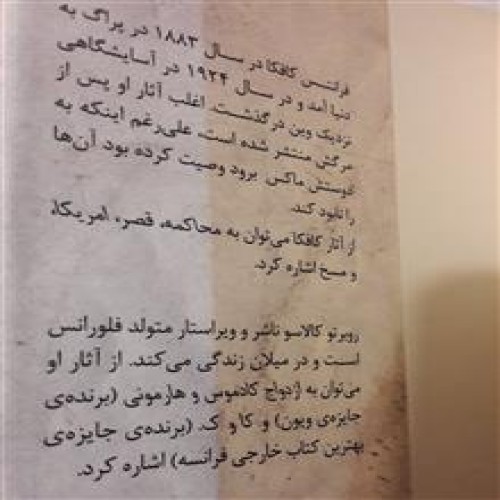 فرانتس کافکا در سال ۱۸۸۳ در پراگ به
دنیا آمد و در سال ۱۹۲۴ در آسایشگاهی
نزدیک وین درگذشت. اغلب آثار او پس از
مرگش منتشر شده است، علی‌رغم اینکه به
دوستش ماکس برود وصیت کرده بود آن‌ها
را نابود کند.
از آثار کافکا می‌توان به محاکمه، قصر، امریکا،
و مسخ اشاره کرد.
روبرتو کالاسو ناشر و ویراستار متولد فلورانس
است و در میلان زندگی می‌کند. از آثار او
می‌توان به ازدواج کادموس و هارمونی (برنده‌ی
جایزه‌ی ویون) و کاو ک. (برنده‌ی جایزه‌ی
بهترین کتاب خارجی فرانسه) اشاره کرد.